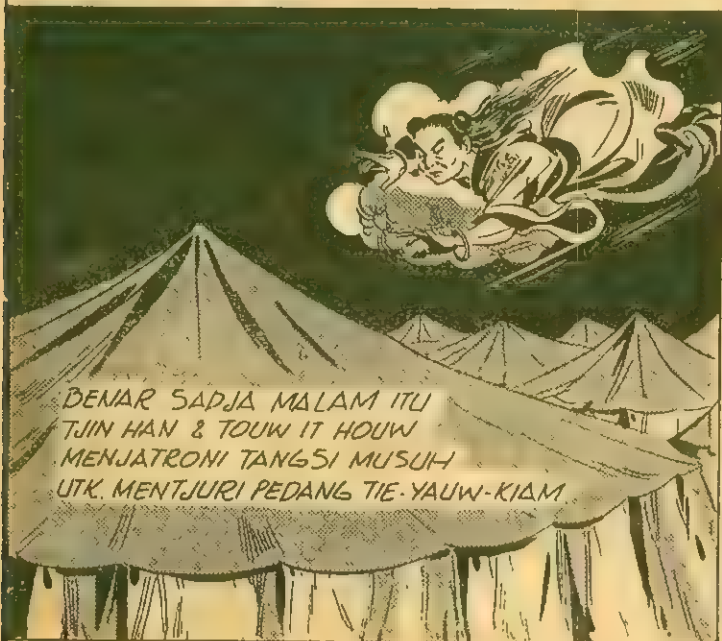 BENAR SADJA MALAM ITU
TJIN HAN & TOUW IT HOUW
MENJATRONI TANGSI MUSUH
UTK. MENTJURI PEDANG TIE-YAUW-KIAM.